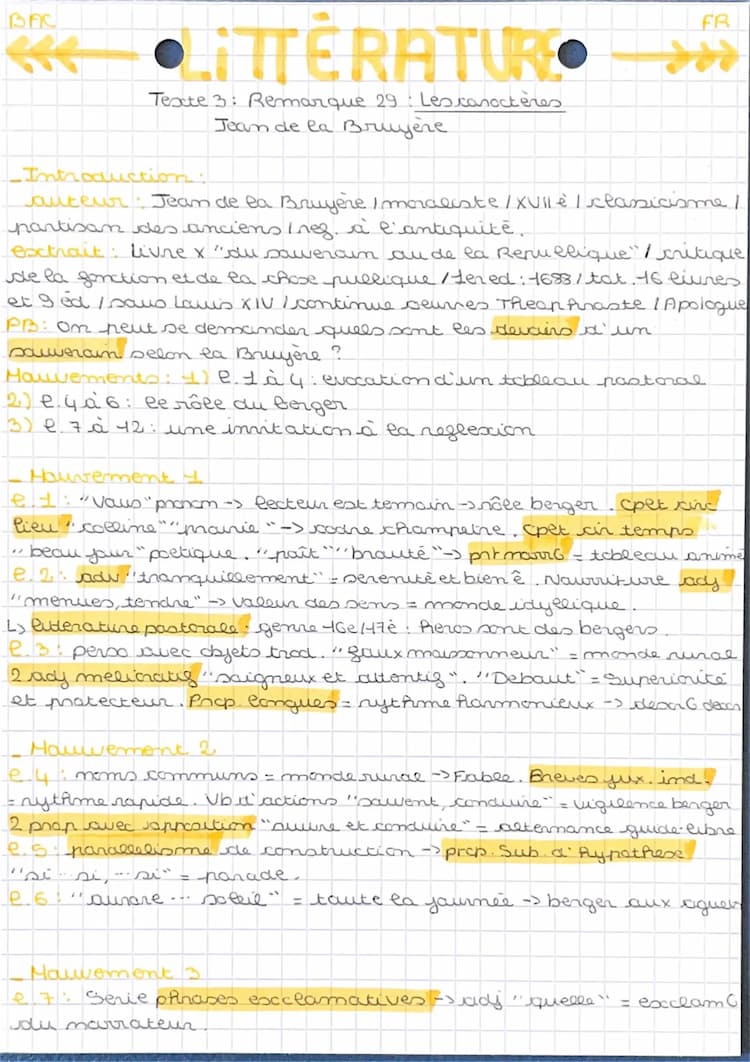 BAC
FR
LiTTÉRATURE
Texte 3 : Remarque 29 : Les caractères
Jean de la Bruyère
_ Introduction :
auteur : Jean de la Bruyère / moraliste / XVIIè / classicisme /
partisan des anciens / reg. à l'antiquité.
extrait : Livre X "du souverain ou de la République" / critique
de la fonction et de la chose publique / 1er ed : 1688 / tot. 16 livres
et 9 éd / sous Louis XIV / continue oeuvres Théophraste / Apologue
PB : On peut se demander quels sont les devoirs d'un
souverain selon la Bruyère ?
Mouvements : 1) l. 1 à 4 : evocation d'un tableau pastoral
2) l. 4 à 6 : le rôle du berger
3) l. 7 à 12 : une invitation à la reflexion
_ Mouvement 1
l. 1 : "Vous" pronom -> lecteur est temoin -> rôle berger . cpct circ
lieu "colline" "prairie" -> cadre champetre . cpct cir temps
"beau jour" poetique . "paît" "broute" -> prt narrG = tableau animé
l. 2 : adv "tranquillement" = serenité et bien ê . Nourriture adj
"menues, tendre" -> valeur des sens = monde idyllique .
L> litterature pastorale : genre 16e/17è : heros sont des bergers .
l. 3 : perso avec objets trad. "faux moissonneur" = monde rural
2 adj melioratif "soigneux et attentif". "Debout" = Superiorité
et protecteur . Prop longues = rythme harmonieux -> descrG
_ Mouvement 2
l. 4 : noms communs = monde rural -> Fable . Breves jux. ind.
= rythme rapide . Vb d'actions "suivent, conduire" = vigilence berger
2 prop avec apposition "suivre et conduire" = alternance guide-libre
l. 5 : parallelisme de construction -> prop. Sub. d'hypothese
"si ... si, ... si" = parade .
l. 6 : "aurore ... soleil" = toute la journée -> berger aux aguets
_ Mouvement 3
l. 7 : Serie phrases exclamatives -> adj "quelle" = exclamG
du narrateur .